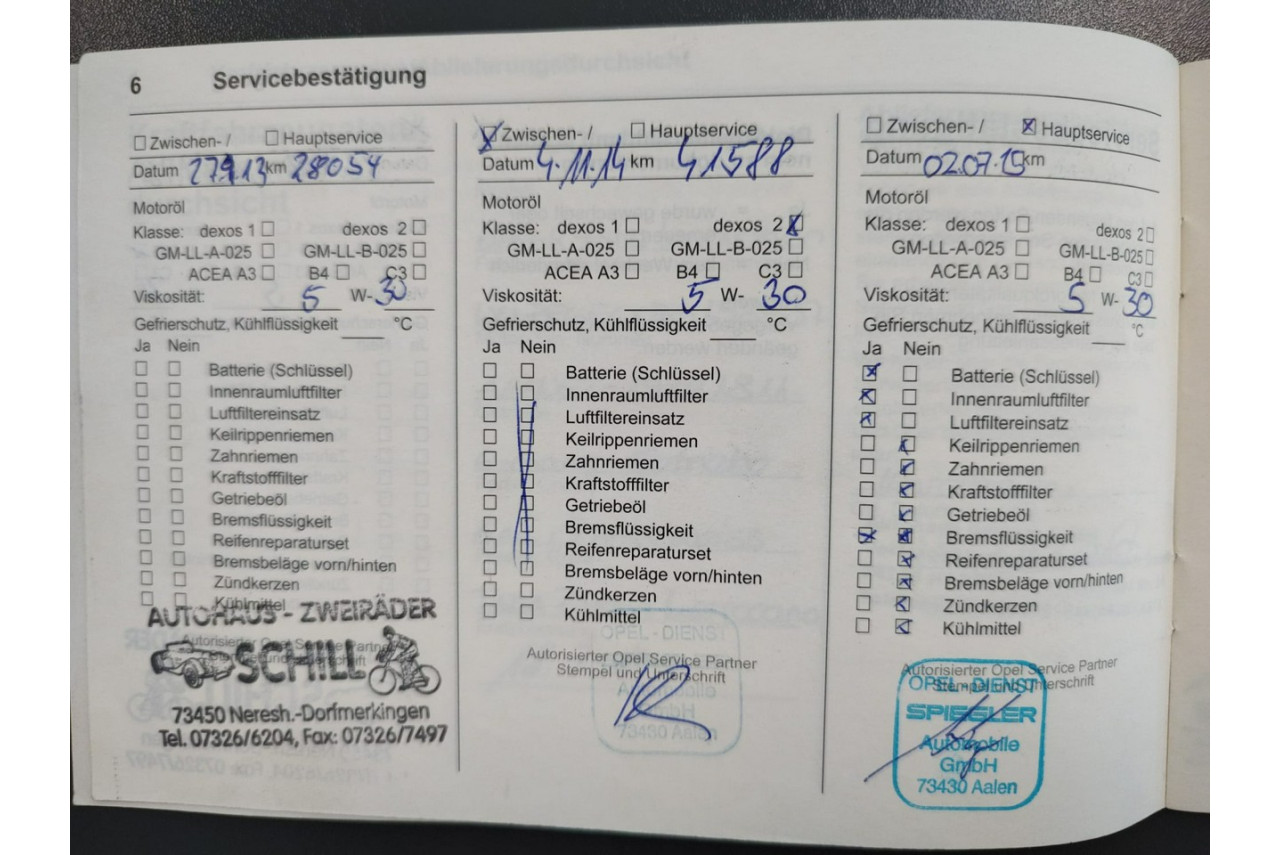 6 Servicebestätigung
Zwischen- / Hauptservice
Datum 27.9.13 km 28054
Motoröl
Klasse: dexos 1 dexos 2
GM-LL-A-025 GM-LL-B-025
ACEA A3 B4 C3
Viskosität: 5 W- 30
Gefrierschutz, Kühlflüssigkeit °C
Ja Nein
Batterie (Schlüssel)
Innenraumluftfilter
Luftfiltereinsatz
Keilrippenriemen
Zahnriemen
Kraftstofffilter
Getriebeöl
Bremsflüssigkeit
Reifenreparaturset
Bremsbeläge vorn/hinten
Zündkerzen
Kühlmittel
AUTOHAUS - ZWEIRÄDER
Autorisierter Opel Service Partner
SCHILL
73450 Neresh.-Dorfmerkingen
Tel. 07326/6204, Fax: 07326/7497
Zwischen- / Hauptservice
Datum 4.11.14 km 41588
Motoröl
Klasse: dexos 1 dexos 2
GM-LL-A-025 GM-LL-B-025
ACEA A3 B4 C3
Viskosität: 5 W- 30
Gefrierschutz, Kühlflüssigkeit °C
Ja Nein
Batterie (Schlüssel)
Innenraumluftfilter
Luftfiltereinsatz
Keilrippenriemen
Zahnriemen
Kraftstofffilter
Getriebeöl
Bremsflüssigkeit
Reifenreparaturset
Bremsbeläge vorn/hinten
Zündkerzen
Kühlmittel
OPEL-DIENST
Autorisierter Opel Service Partner
Stempel und Unterschrift
Automobile
GmbH
73430 Aalen
Zwischen- / Hauptservice
Datum 02.07.15 km
Motoröl
Klasse: dexos 1 dexos 2
GM-LL-A-025 GM-LL-B-025
ACEA A3 B4 C3
Viskosität: 5 W- 30
Gefrierschutz, Kühlflüssigkeit °C
Ja Nein
Batterie (Schlüssel)
Innenraumluftfilter
Luftfiltereinsatz
Keilrippenriemen
Zahnriemen
Kraftstofffilter
Getriebeöl
Bremsflüssigkeit
Reifenreparaturset
Bremsbeläge vorn/hinten
Zündkerzen
Kühlmittel
Autorisierter Opel Service Partner
Stempel und Unterschrift
OPEL-DIENST
SPIEGLER
Automobile
GmbH
73430 Aalen